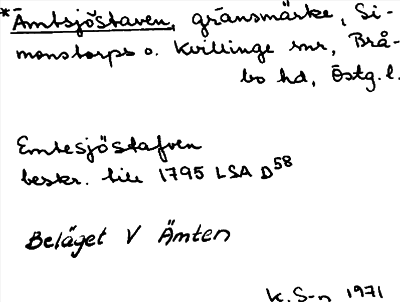 *Ämtsjöstaven, gränsmärke, Si-
monstorps o. Kvillinge snr, Brå-
bo hd, Östg. l.
Emtesjöstafven
beskr. till 1795 LSA D58
Beläget V Ämten
K. S-n 1971